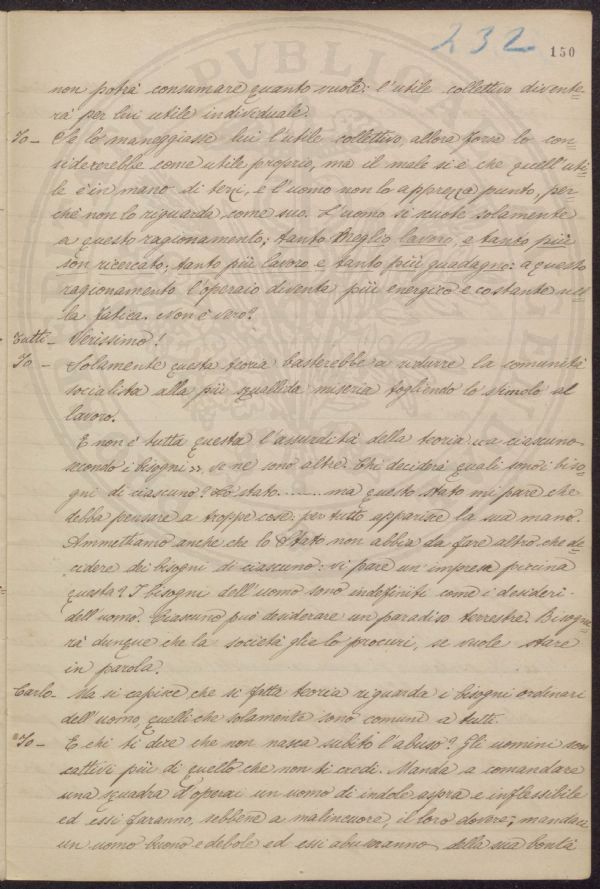 232 150
non potrà consumare quanto vuole: l'utile collettivo divente=
rà per lui utile individuale.
Io - Se lo maneggiasse lui l'utile collettivo, allora forse lo con=
sidererebbe come utile proprio, ma il male si è che quell'uti=
le è in mano di terzi, e l'uomo non lo apprezza punto, per=
chè non lo riguarda come suo. L'uomo si scuote solamente
a questo ragionamento: tanto meglio lavoro, e tanto più
son ricercato; tanto più lavoro e tanto più guadagno: a questo
ragionamento l'operaio diventa più energico e costante nel=
la fatica. Non è vero?
Tutti - Verissimo!
Io - Solamente questa teoria basterebbe a ridurre la comunità
socialista alla più squallida miseria togliendo lo stimolo al
lavoro.
E non è tutta questa l'assurdità della teoria «a ciascuno
secondo i bisogni», ve ne sono altre. Chi deciderà quali sono i biso=
gni di ciascuno? Lo stato........ ma questo stato mi pare che
debba pensare a troppe cose: per tutto apparisce la sua mano.
Ammettiamo anche che lo Stato non abbia da fare altro che de=
cidere dei bisogni di ciascuno: vi pare un'impresa piccina
questa? I bisogni dell'uomo sono indefiniti come i desideri
dell'uomo. Ciascuno può desiderare un paradiso terrestre. Bisogne=
rà dunque che la società glielo procuri, se vuole stare
in parola.
Carlo - Ma si capisce che sì fatta teoria riguarda i bisogni ordinari
dell'uomo, quelli che solamente sono comuni a tutti.
Io - E chi ti dice che non nasca subito l'abuso? Gli uomini son
cattivi più di quello che non ti credi. Manda a comandare
una squadra d'operai un uomo di indole aspra e inflessibile
ed essi faranno, sebbene a malincuore, il loro dovere; mandaci
un uomo buono e debole ed essi abuseranno della sua bontà